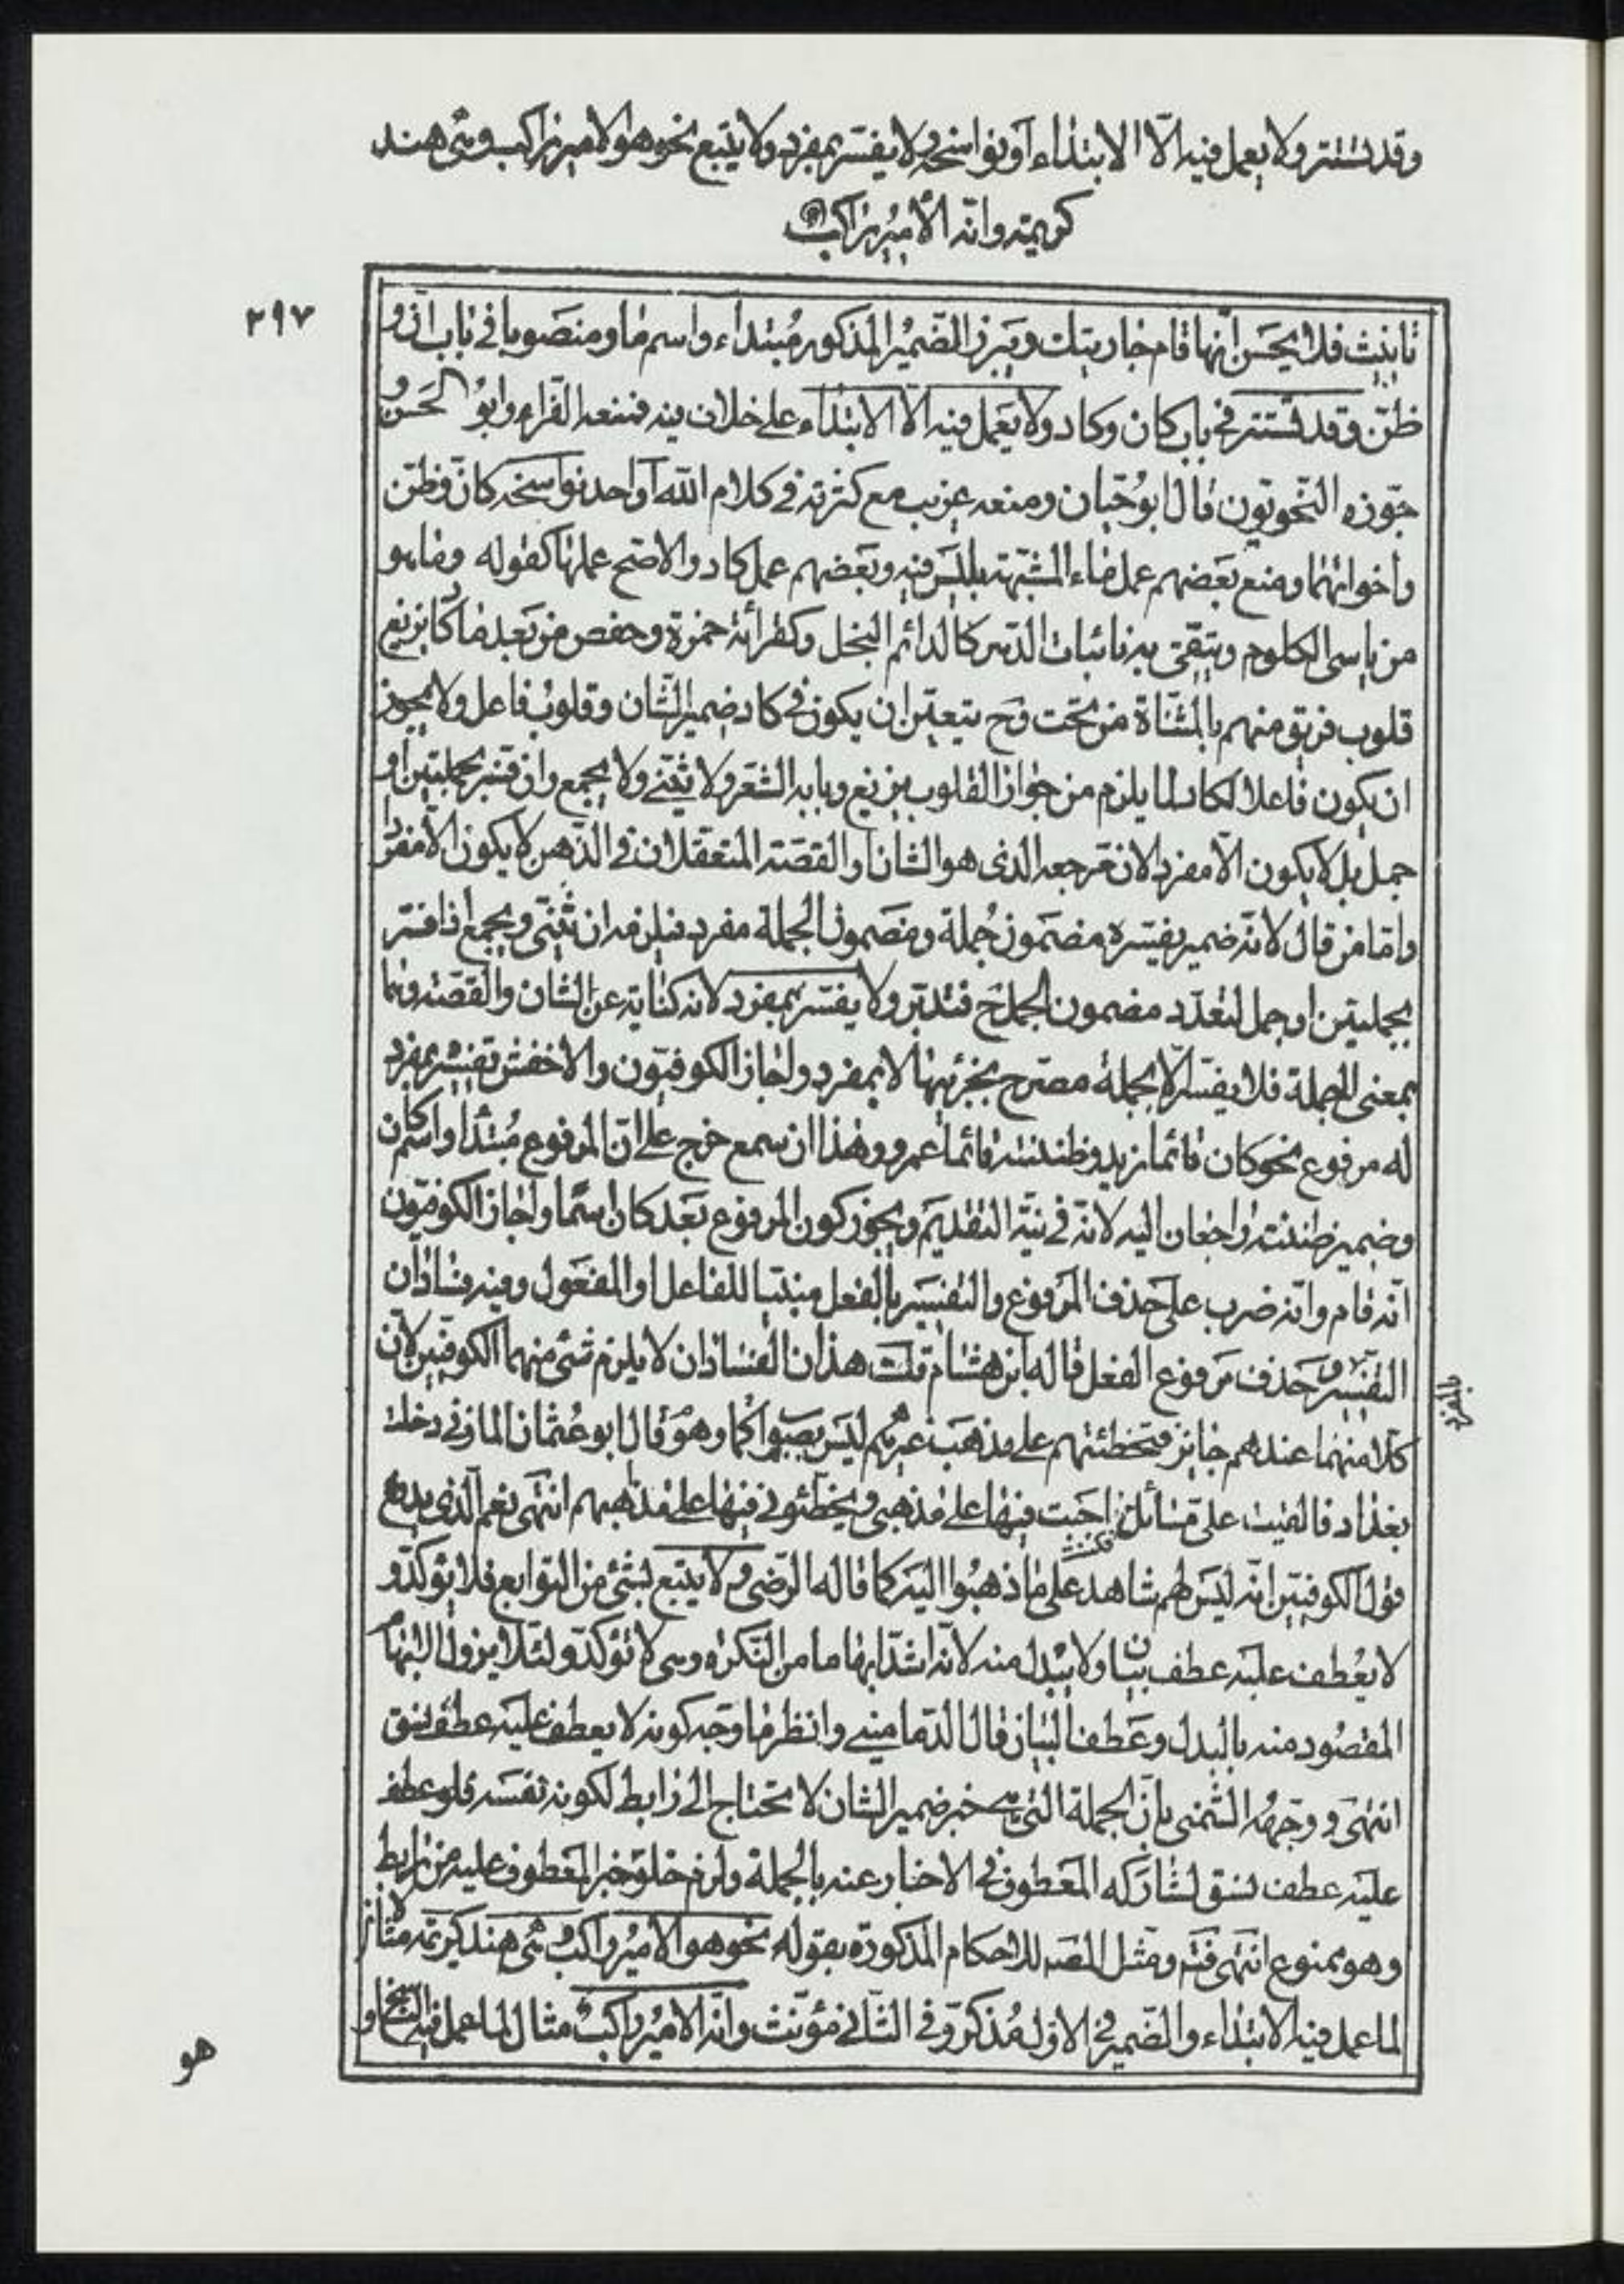 وقد تستتر ولا يعمل فيه الّا الابتداء او نواسخه ولا يفسّر بمفرد ولا يتبع نحو هو الامير راكب وهى هند
كريمة وانّه الأمير راكب
٢٩٧
تانيث فلا يحسن انّها قام جاريتك ويبرز الضّمير المذكور مُبتداء واسم ما ومنصوبا فى باب انّ و
ظنّ وقد تستتر فى باب كان وكاد ولا يعمل فيه الّا الابتداء على خلاف فيه فمنعه الفرّاء وابو الحسن و
جوّزه النّحويّون قال ابو حيّان ومنعه غريب مع كثرته فى كلام الله او احد نواسخه كانّ وظنّ
واخواتهما ومنع بعضهم عمل ماء المشبّهة بليس فيه وبعضهم عمل كاد والاصحّ عملها كقوله وما هو
من ياسى الكلوم ويتّقى به نائبات الدّهر كالدائم البخل وكقرائة حمزة وحفص من بعد ما كاد يزيغ
قلوب فريق منهم بالمثنّاة من تحت وح يتعيّن ان يكون فى كاد ضمير الشّان وقلوب فاعل ولا يجوز
ان يكون فاعلا لكاد لما يلزم من جواز القلوب يزيغ وبابه الشعر ولا يثنّى ولا يجمع وان فسّر بجملتين او
جمل بل لا يكون الّا مفردا لانّ مرجعه الذى هو الشان او القصّة المتعقلان فى الذّهن لا يكون الّا مفردا
وامّا من قال لانّه ضمير يفسّره مضمون جُملة ومضمون الجملة مفرد فيلزمه ان يثنّى ويجمع اذا فسّر
بجملتين او جمل لتعدّد مضمون الجمل ح فتدبّر ولا يفسّر بمفرد لانه كناية عن الشان والقصّة وهما
بمعنى الجملة فلا يفسّر الّا بجملة مصرّح بجزئيها لا بمفرد واجاز الكوفيّون والاخفش تفسيره بمفرد
له مرفوع نحو كان قائما زيد وظننته قائما عمرو وهذا ان سمع خرج على انّ المرفوع مُبتدا واسم كان
وضمير ظننته راجعان اليه لانّه فى نيّة التقديم ويجوز كون المرفوع بعد كان اسمًا واجاز الكوفيّون
انّه قام وانّه ضرب على حذف المرفوع والتفسير بالفعل مبنيّا للفاعل او المفعول وفيه فسادان
التفسير وحذف مرفوع الفعل قاله ابن هشام قلت هذان الفسادان لا يلزم شىء منهما الكوفيّين لانّ
بالمفرد
كلّا منهما عندهم جايز فتخطئتهم على مذهب غيرهم ليس بصواب كما وهو قال ابو عثمان المازنى دخلت
بغداد فالقيت علىّ مسائل فكنت اجبت فيها على مذهبى ويخطّئونى فيها على مذهبهم انتهى نعم الّذى يدفع
قول الكوفيّين انّه ليس لهم شاهد على ما ذهبوا اليه كما قاله الرّضى ولا يتبع بشئ من التوابع فلا يؤكّد و
لا يعطف عليه عطف بيان ولا يبدل منه لانّه اشدّ ابهاما من النّكرة وهى لا تؤكّد ولئلّا يزول الابهام
المقصود منه بالبدل وعطف البيان قال الدّمامينى وانظر ما وجه كونه لا يعطف عليه عطف نسق
انتهى ووجّهه الشّمنى بانّ الجملة الّتى هى خبر ضمير الشان لا تحتاج الى رابط لكونه نفسه فلو عطف
عليه عطف نسق لشاركه المعطوف فى الاخبار عنه بالجملة ولزم خلوّ خبر المعطوف عليه من رابط
وهو ممنوع انتهى ومثّل المصـ للاحكام المذكورة بقوله نحو هو الامير راكب وهى هند كريمة مثالان
لما عمل فيه الابتداء والضّمير فى الاوّل مُذكّر وفى الثّانى مؤنّث وانّه الامير راكب مثال لما عمل فيه الناسخ و
هو